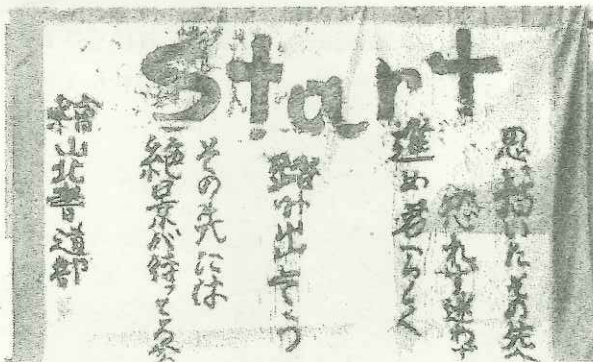 Start
思い描いたその先へ
恐れず迷わず
進め君らしく
踏み出そう
その先には
絶景が待ってる
檜山北書道部